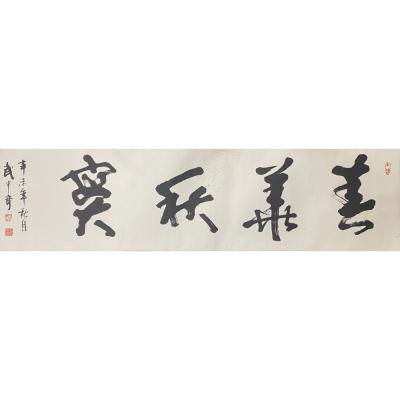 春華秋實
辛未年秋月
武中奇